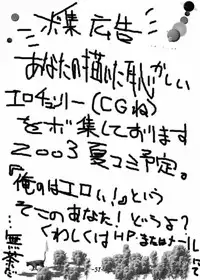 ボ集広告
あなたの描いた恥かしい
エロチェリー(CGね)
をボ集しております
2003夏コミ予定。
『俺のはエロい!』という
そこのあなた!どうよ?
くわしくはHP.またはメールにて
…無茶
-37-